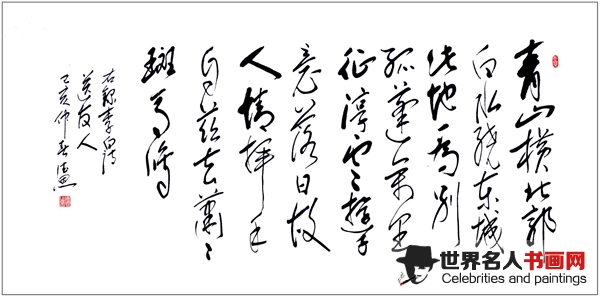 青山横北郭
白水绕东城
此地为别
孤蓬万里
征浮云游子
意落日故
人情挥手
自兹去萧〻
斑马鸣
右录李白诗
送友人
己亥仲春
世界名人书画网
Celebrities and paintings